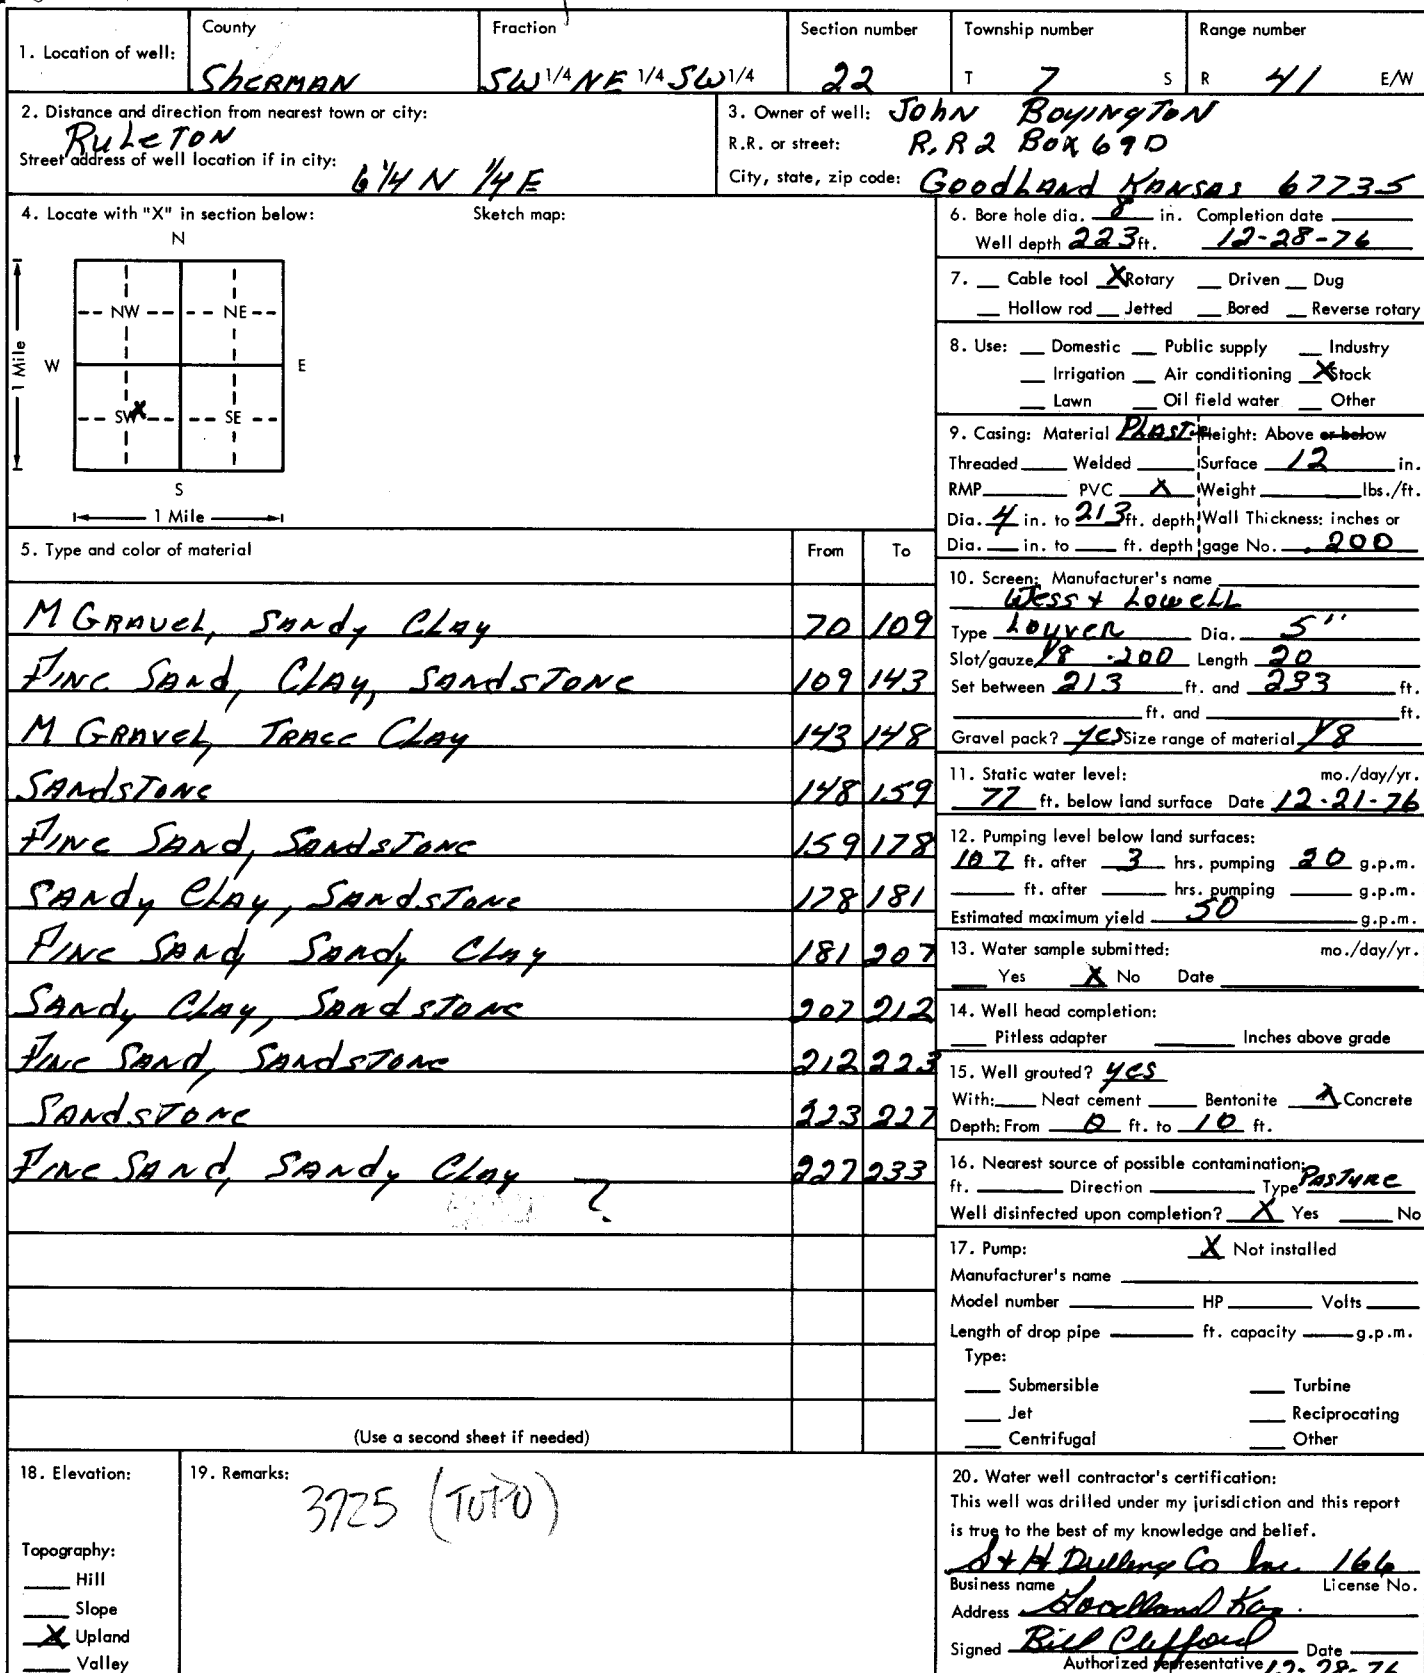 County Fraction Section number Township number Range number
1. Location of well: Sherman SW 1/4 NE 1/4 SW 1/4 22 T 7 S R 41 E/W
2. Distance and direction from nearest town or city:
Ruleton
Street address of well location if in city:
6 1/4 N 1/4 E
3. Owner of well: John Boyington
R.R. or street: R.R 2 Box 69D
City, state, zip code: Goodland Kansas 67735
4. Locate with "X" in section below: Sketch map:
N
NW NE
W E
1 Mile
SW X SE
S
1 Mile
5. Type and color of material From To
M Gravel, Sandy Clay 70 109
Fine Sand, Clay, Sandstone 109 143
M Gravel, Trace Clay 143 148
Sandstone 148 159
Fine Sand, Sandstone 159 178
Sandy Clay, Sandstone 178 181
Fine Sand, Sandy Clay 181 207
Sandy Clay, Sandstone 207 212
Fine Sand, Sandstone 212 223
Sandstone 223 227
Fine Sand, Sandy Clay ? 227 233
(Use a second sheet if needed)
6. Bore hole dia. 8 in. Completion date
Well depth 223 ft. 12-28-76
7. Cable tool X Rotary Driven Dug
Hollow rod Jetted Bored Reverse rotary
8. Use: Domestic Public supply Industry
Irrigation Air conditioning X Stock
Lawn Oil field water Other
9. Casing: Material Plastic Height: Above or below
Threaded Welded Surface 12 in.
RMP PVC X Weight lbs./ft.
Dia. 4 in. to 213 ft. depth Wall Thickness: inches or
Dia. in. to ft. depth gage No. .200
10. Screen: Manufacturer's name
Wess + Lowell
Type Louver Dia. 5"
Slot/gauze 1/8 .200 Length 20
Set between 213 ft. and 233 ft.
ft. and ft.
Gravel pack? yes Size range of material 1/8
11. Static water level: mo./day/yr.
77 ft. below land surface Date 12-21-76
12. Pumping level below land surfaces:
107 ft. after 3 hrs. pumping 20 g.p.m.
ft. after hrs. pumping g.p.m.
Estimated maximum yield 50 g.p.m.
13. Water sample submitted: mo./day/yr.
Yes X No Date
14. Well head completion:
Pitless adapter Inches above grade
15. Well grouted? yes
With: Neat cement Bentonite X Concrete
Depth: From 0 ft. to 10 ft.
16. Nearest source of possible contamination:
ft. Direction Type Pasture
Well disinfected upon completion? X Yes No
17. Pump: X Not installed
Manufacturer's name
Model number HP Volts
Length of drop pipe ft. capacity g.p.m.
Type:
Submersible Turbine
Jet Reciprocating
Centrifugal Other
18. Elevation:
Topography:
Hill
Slope
X Upland
Valley
19. Remarks:
3725 (TOPO)
20. Water well contractor's certification:
This well was drilled under my jurisdiction and this report
is true to the best of my knowledge and belief.
S & H Drilling Co Inc. 166
Business name License No.
Address Goodland Kas.
Signed Bill Clifford Date
Authorized representative 12-28-76